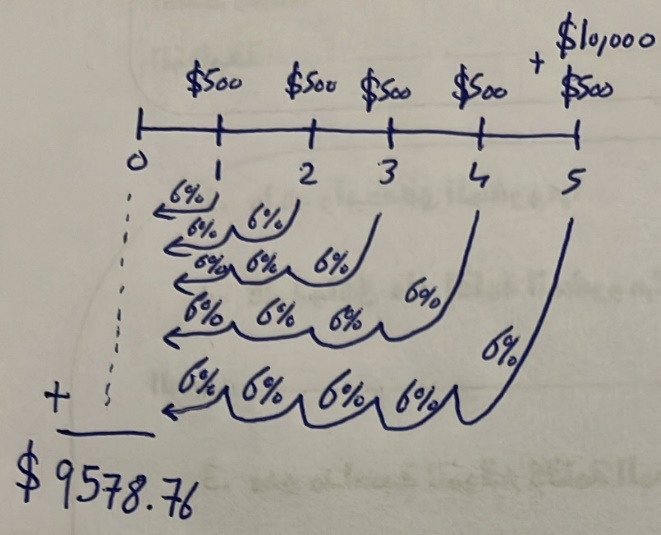 $10,000
$500 $500 $500 $500 + $500
0 1 2 3 4 5
6%
6% 6%
6% 6% 6%
6% 6% 6% 6%
6% 6% 6% 6% 6%
+
$9578.76